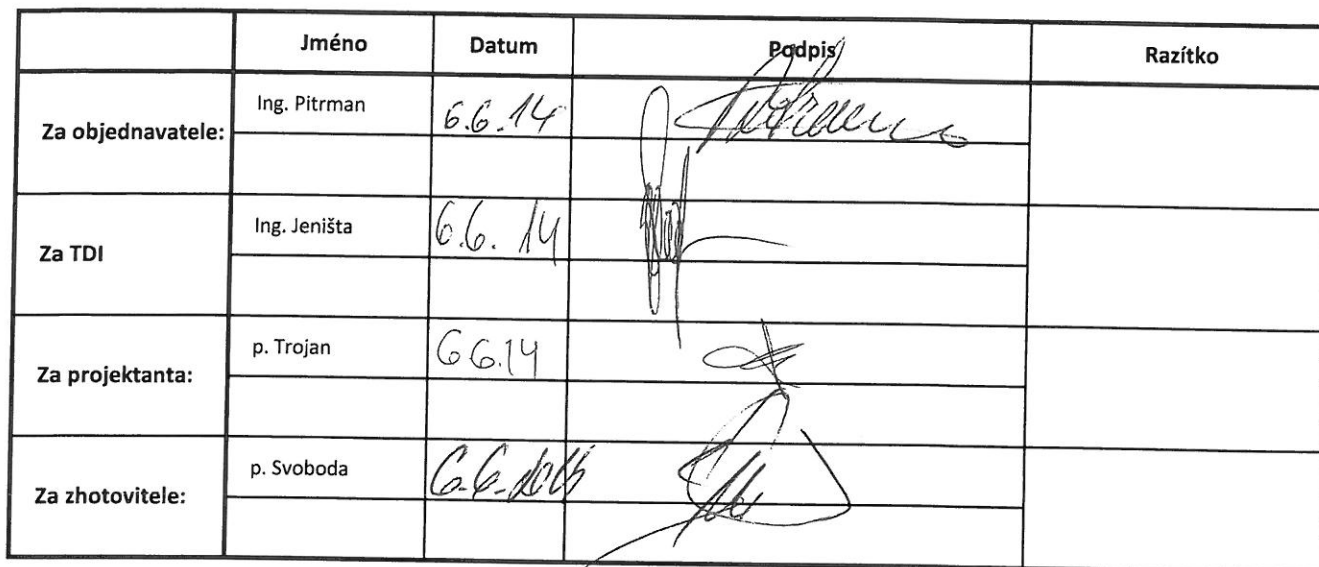 Jméno Datum Podpis Razítko
Za objednavatele: Ing. Pitrman 6.6.14
Za TDI Ing. Jeništa 6.6.14
Za projektanta: p. Trojan 6 6.14
Za zhotovitele: p. Svoboda